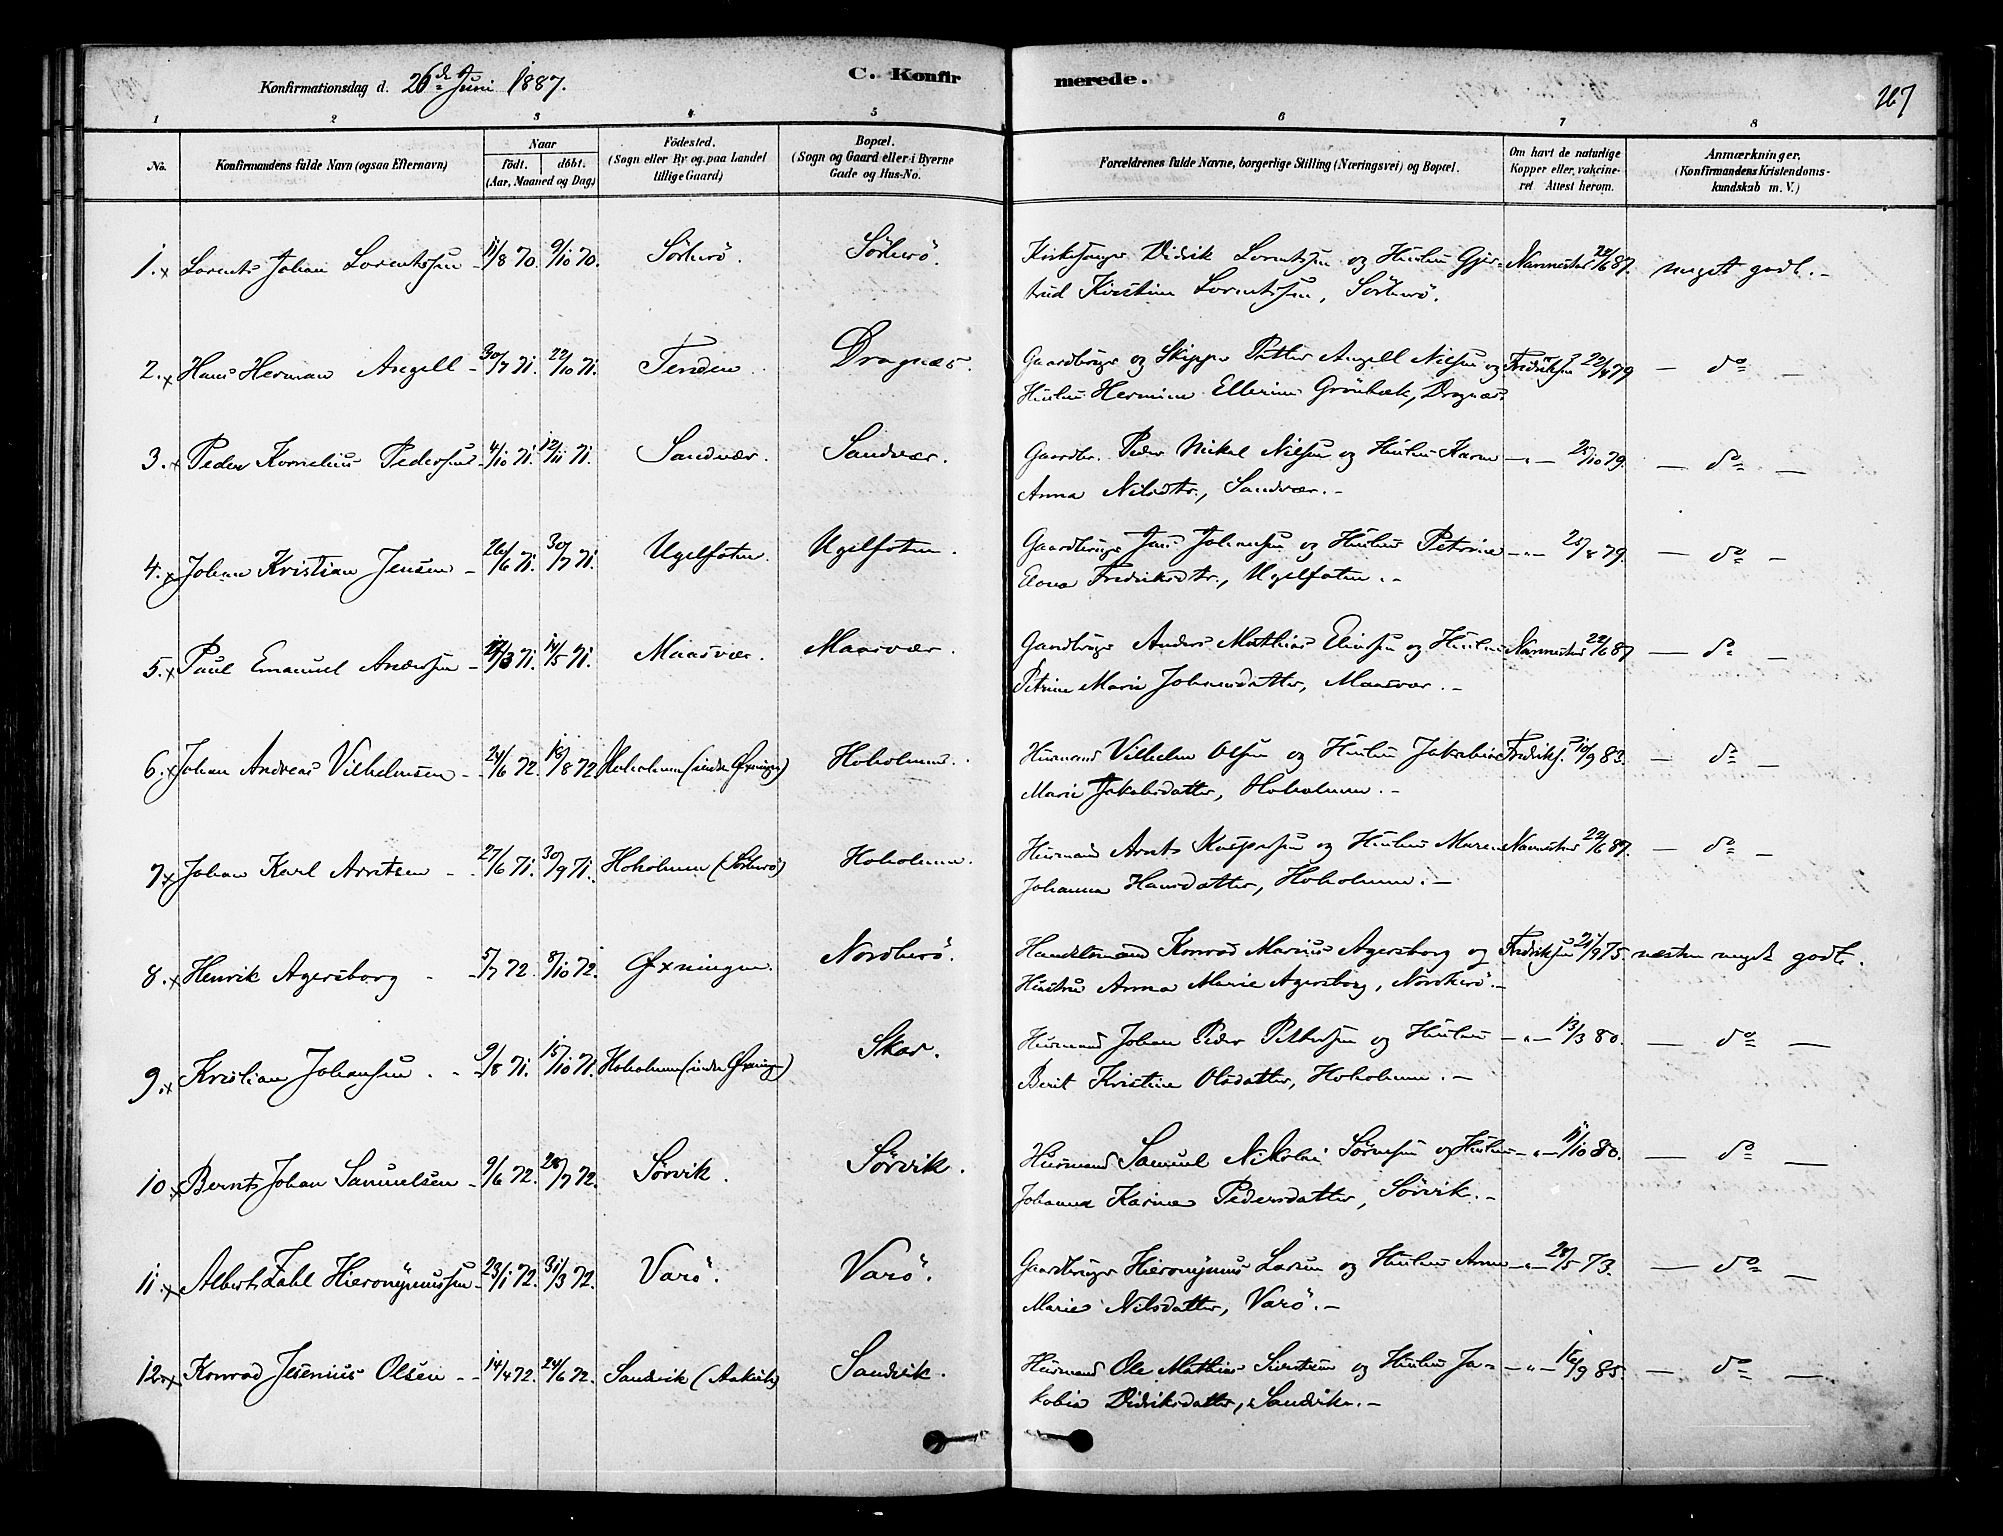 Konfirmationsdag d. 26de Juni 1887.
C. Konfirmerede.
267
1 2 3 4 5 6 7 8
No.
Konfirmandens fulde Navn (ogsaa Efternavn)
Naar
födt. döbt.
(Aar, Maaned og Dag)
Födested.
(Sogn eller By og paa Landet
tillige Gaard)
Bopæl.
(Sogn og Gaard eller i Byerne
Gade og Hus-No.
Forældrenes fulde Navne, borgerlige Stilling (Næringsvei) og Bopæl.
Om havt de naturlige
Kopper eller vakcine-
ret Attest herom.
Anmærkninger.
(Konfirmandens Kristendoms-
kundskab m. V.)
1. x Lorents Johan Lorentssen 11/8 70. 9/10 70. Sörherö. Sörherö. Kirkesanger Didrik Lorentssen og Hustru Gjer- Navnestad 22/6 87. meget godt. -
trud Kirstine Lorentssen, Sörherö.
2. x Hans Herman Angell - 30/7 71. 22/10 71. Tenden. Dragnæs. Gaardbruger og Skipper Petter Angell Nielsen og Fredriksen 22/8 79 - do -
Hustru Hermine Ellerine Grönbæk, Dragnæs.
3. x Peder Kornelius Pedersen - 4/10 71. 12/11 71. Sandvær. Sandvær. Gaardbr. Peder Mikal Nilsen og Hustru Karen - " - 25/10 79. - do -
Anna Nilsdtr., Sandvær. -
4. x Johan Kristian Jensen - 26/6 71. 30/7 71. Ugelfoten. Ugelfoten. Gaardbruger Jens Johansen og Hustru Petrine - " - 25/8 79. - do -
Elona Fredriksdtr., Ugelfoten. -
5. x Paul Emanuel Andersen - 17/3 71. 14/5 71. Maasvær. Maasvær. Gaardbruger Anders Mathias Eliassen og Hustru 22/6 87 - do -
Petrine Marie Johannsdatter, Maasvær. -
6. x Johan Andreas Vilhelmsen - 24/6 72. 18/8 72 Hoholmen (indre Öxningen) Hoholmen. Husmand Vilhelm Olsen og Hustru Jakobine Fredriks. 10/9 83. - do -
Marie Jakobsdatter, Hoholmen. -
7. x Johan Karl Arntsen - 27/6 71. 30/9 71. Hoholmen (Sörherö) Hoholmen. Husmand Arnts Kaspersen og Hustru Maren 22/6 87. - do -
Johanna Hansdatter, Hoholmen. -
8. x Henrik Agersborg - 5/7 72. 8/10 72. Öxningen. Nordherö. Handelsmand Konrad Marius Agersborg og Fredriksen 21/9 75. næsten meget godt.
Hustru Anna Marie Agersborg, Nordherö. -
9. x Kristian Johansen - 9/8 71. 15/10 71. Hoholmen (indre Öxningen) Skar. Husmand Johan Peder Pettersen og Hustru - " - 13/3 80. - do -
Berit Kristine Olsdatter, Hoholmen. -
10. x Bernts Johan Samuelsen - 9/6 72. 28/7 72. Sørvik. Sørvik. Husmand Samuel Nikolai Sørensen og Hustru - " - 11/10 80. - do -
Johanna Karine Pedersdatter, Sørvik. -
11. x Alberts Zahl Hieronymussen - 23/1 72. 31/3 72. Varö. Varö. Gaardbruger Hieronymus Larsen og Hustru Anne - " - 28/5 73. - do -
Marie Nilsdatter, Varö. -
12. x Konrad Jesenius Olsen - - 14/4 72. 24/6 72. Sandvik (Aakvik) Sandvik. Husmand Ole Mathias Sivertsen og Hustru Ja- - " - 16/9 85. - do -
kobia Didriksdatter, Sandvik. -